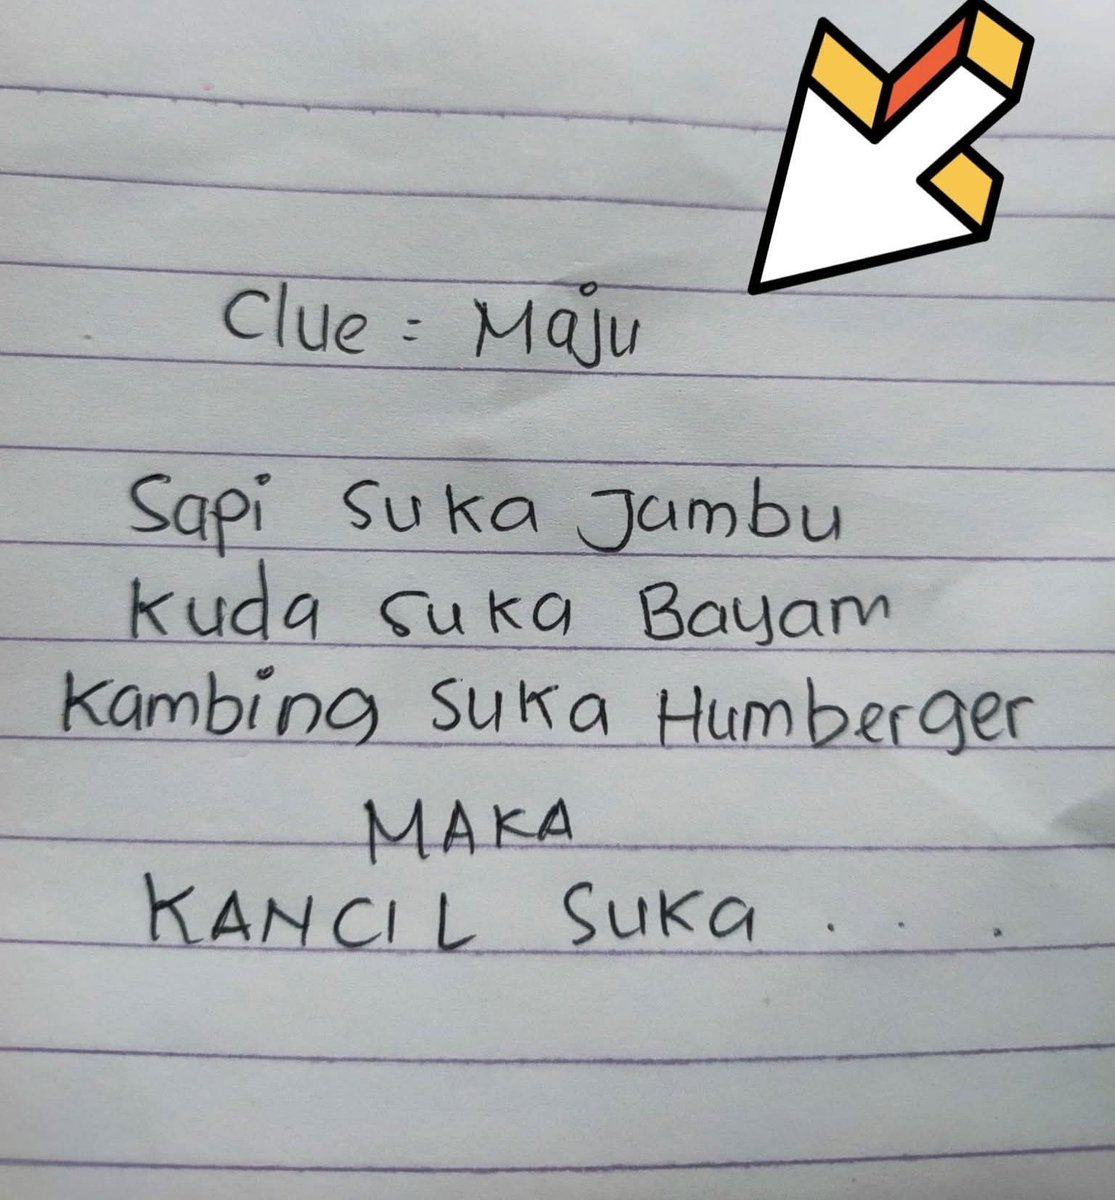 Clue = Maju
Sapi suka Jambu
Kuda suka Bayam
Kambing suka Humberger
MAKA
KANCIL suka . . .